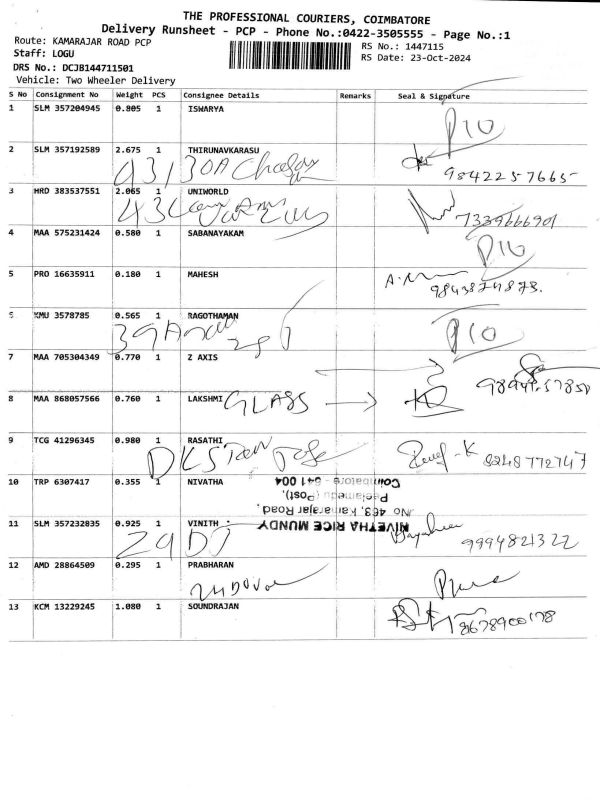 THE PROFESSIONAL COURIERS, COIMBATORE
Delivery Runsheet - PCP - Phone No.:0422-3505555 - Page No.:1
Route: KAMARAJAR ROAD PCP
RS No.: 1447115
Staff: LOGU
RS Date: 23-Oct-2024
DRS No.: DCJB144711501
Vehicle: Two Wheeler Delivery
S No Consignment No Weight PCS Consignee Details Remarks Seal & Signature
1 SLM 357204945 0.805 1 ISWARYA
P10
2 SLM 357192589 2.675 1 THIRUNAVKARASU
9842257665
3 HRD 383537551 2.065 1 UNIWORLD
7339666901
4 MAA 575231424 0.580 1 SABANAYAKAM
P10
5 PRO 16635911 0.180 1 MAHESH
9843874873.
6 KMU 3578785 0.565 1 RAGOTHAMAN
P10
7 MAA 705304349 0.770 1 Z AXIS
8 MAA 868057566 0.760 1 LAKSHMI GLASS
9 TCG 41296345 0.980 1 RASATHI
8248772747
10 TRP 6307417 0.355 1 NIVATHA
NIVETHA RICE MUNDY
No. 463, Kamarajar Road,
Peelamedu (Post),
Coimbatore - 641 004
11 SLM 357232835 0.925 1 VINITH .
29 DJ
9994821322
12 AMD 28864509 0.295 1 PRABHARAN
13 KCM 13229245 1.080 1 SOUNDRAJAN
8678900178